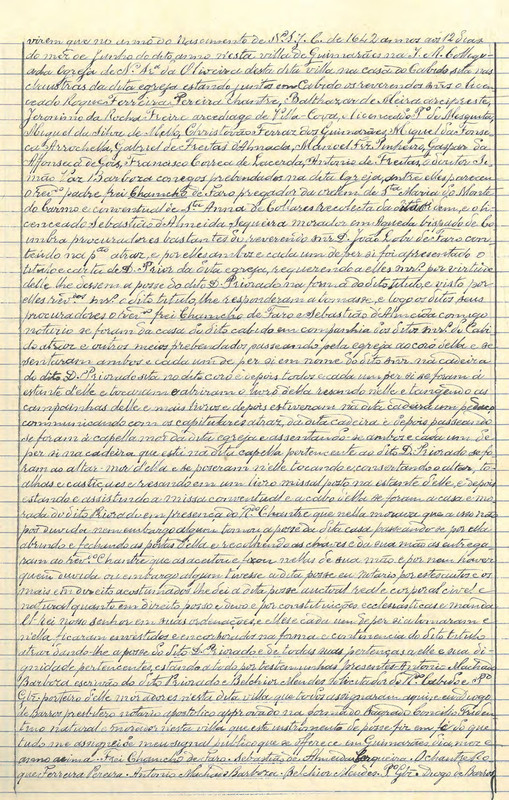 virem que no anno do Nascimento de N. S. J. C. de 1642 annos aos 12 dias
do mez de Junho do dito anno n'esta villa de Guimarães na I. M. Colleg-
iada Egreja de N.ª Sr.ª da Oliveira desta dita villa na casa do Cabido sita nas
claustras da dita egreja estando junto em Cabido os reverendos snres o licen-
ceado Roque Ferreira Pereira Chantre, Balthazar de Meira arcipreste,
Jeronimo da Rocha Freire arcediago de Villa-Cova, o licenceado P.º de Mesquita,
Miguel da Silva de Mello, Christovão Ferraz dos Guimarães, Miguel da Fonse-
ca Arrochella, Gabriel de Freitas d'Almada, Manoel Frz Pinheiro, Gaspar da
Affonseca de Góis, Francisco Correa de Lacerda, Antonio de Freitas, doutor Si-
mão Vaz Barboza conegos prebendados na dita Egreja, ante elles pareceu
o Rev.do padre frei Chamelho de Faro pregador da ordem de S.ta Maria do Monte
do Carmo e conventual de S.ta Anna de Collares recolecta da dita ordem, e o li-
cenceado Sebastião d'Almeida Sequeira morador em Agueda bispado de Co-
imbra procuradores bastantes do reverendo snr D. João Lobo de Faro con-
teudo na p.ção atraz, e por elles ambos e cada um de per si foi apresentado o
titulo e carta de D. Prior da dita egreja, requerendo a elles snres por virtude
delle lhe dessem a posse do dito D. Priorado na forma do dito titulo, e visto por
elles rev.dos snres o dito titulo, lhe responderam a tomasse, e logo os ditos seus
procuradores o Rev.do frei Chamelho de Faro e Sebastião d'Almeida comigo
notario se foram da casa do dito cabido em companhia dos ditos snres do Cabi-
do atraz e outros meios prebendados, passeando pela egreja ao côro d'ella e se
sentaram ambos e cada um de per si em nome do dito snr na cadeira
do dito D. Priorado sita no dito côro e depois todos e cada um per si se foram á
estante d'elle e tocaram e abriram o livro d'ella resando n'elle e tangendo as
campainhas d'elle e mais livros e depois estiveram na dita cadeira um pedaço
communicando com os capitulares atraz, da dita cadeira e depois passeando
se foram á capella mór da dita egreja e assentando-se ambos e cada um de
per si na cadeira que está na dita capella pertencente ao dito D. Priorado se fo-
ram ao altar-mór d'ella e se poseram n'elle tocando e consertando o altar, to-
alhas e castiçaes e resando em um livro missal posto na estante d'elle, e depois
estando e assistindo a missa conventual e acabo d'elle se foram a casa e mo-
rada do dito Priorado em presença do R.do Chantre que nella morava que a uso não
poz duvida nem embargo algum, tomou a posse da dita casa passeando-se por ella
abrindo e fechando as portas d'ella e recolhendo as chaves da sua mão as entrega-
ram ao rev.do Chantre que as aceitou e ficou nellas de sua mão e por nem haver
quem duvida ou embargo algum tivesse á dita posse eu notario por estes autos e os
mais em direito acostumados lhe dei a dita posse auctual real e corporal civel e
natural quanto em direito posso e devo e por constituições ecclesiasticas e manda
el Rei nosso senhor em suas ordenações, e elles e cada um de per si a tomaram e
n'ella ficaram envestidos e encorporados na forma e continencia do dito titulo
atraz dando-lhe a posse do dito D. Priorado e de todas suas pertenças a elle e sua di-
gnidade pertencentes, estando a tudo por testemunhas presentes Antonio Machado
Barboza escrivão do dito Priorado e Belchior Mendes sollicitador do R.do Cabido e P.º
Glz porteiro d'elle moradores nesta dita villa que todos assignaram aqui, e eu Diogo
de Barros presbitero notario apostolico approvado na forma do Sagrado Concilio Triden-
tino natural e morador nesta villa que este instrumento de posse fiz em fé do que
tudo me assignei de meu signal publico que se offerece em Guimarães dia mez e
anno acima. Frei Chamelho de Faro. Sebastião de Almeida Sequeira. O chantre Ro-
que Ferreira Pereira. Antonio Machado Barboza. Belchior Mendes. P.º Glz. Diogo de Barros